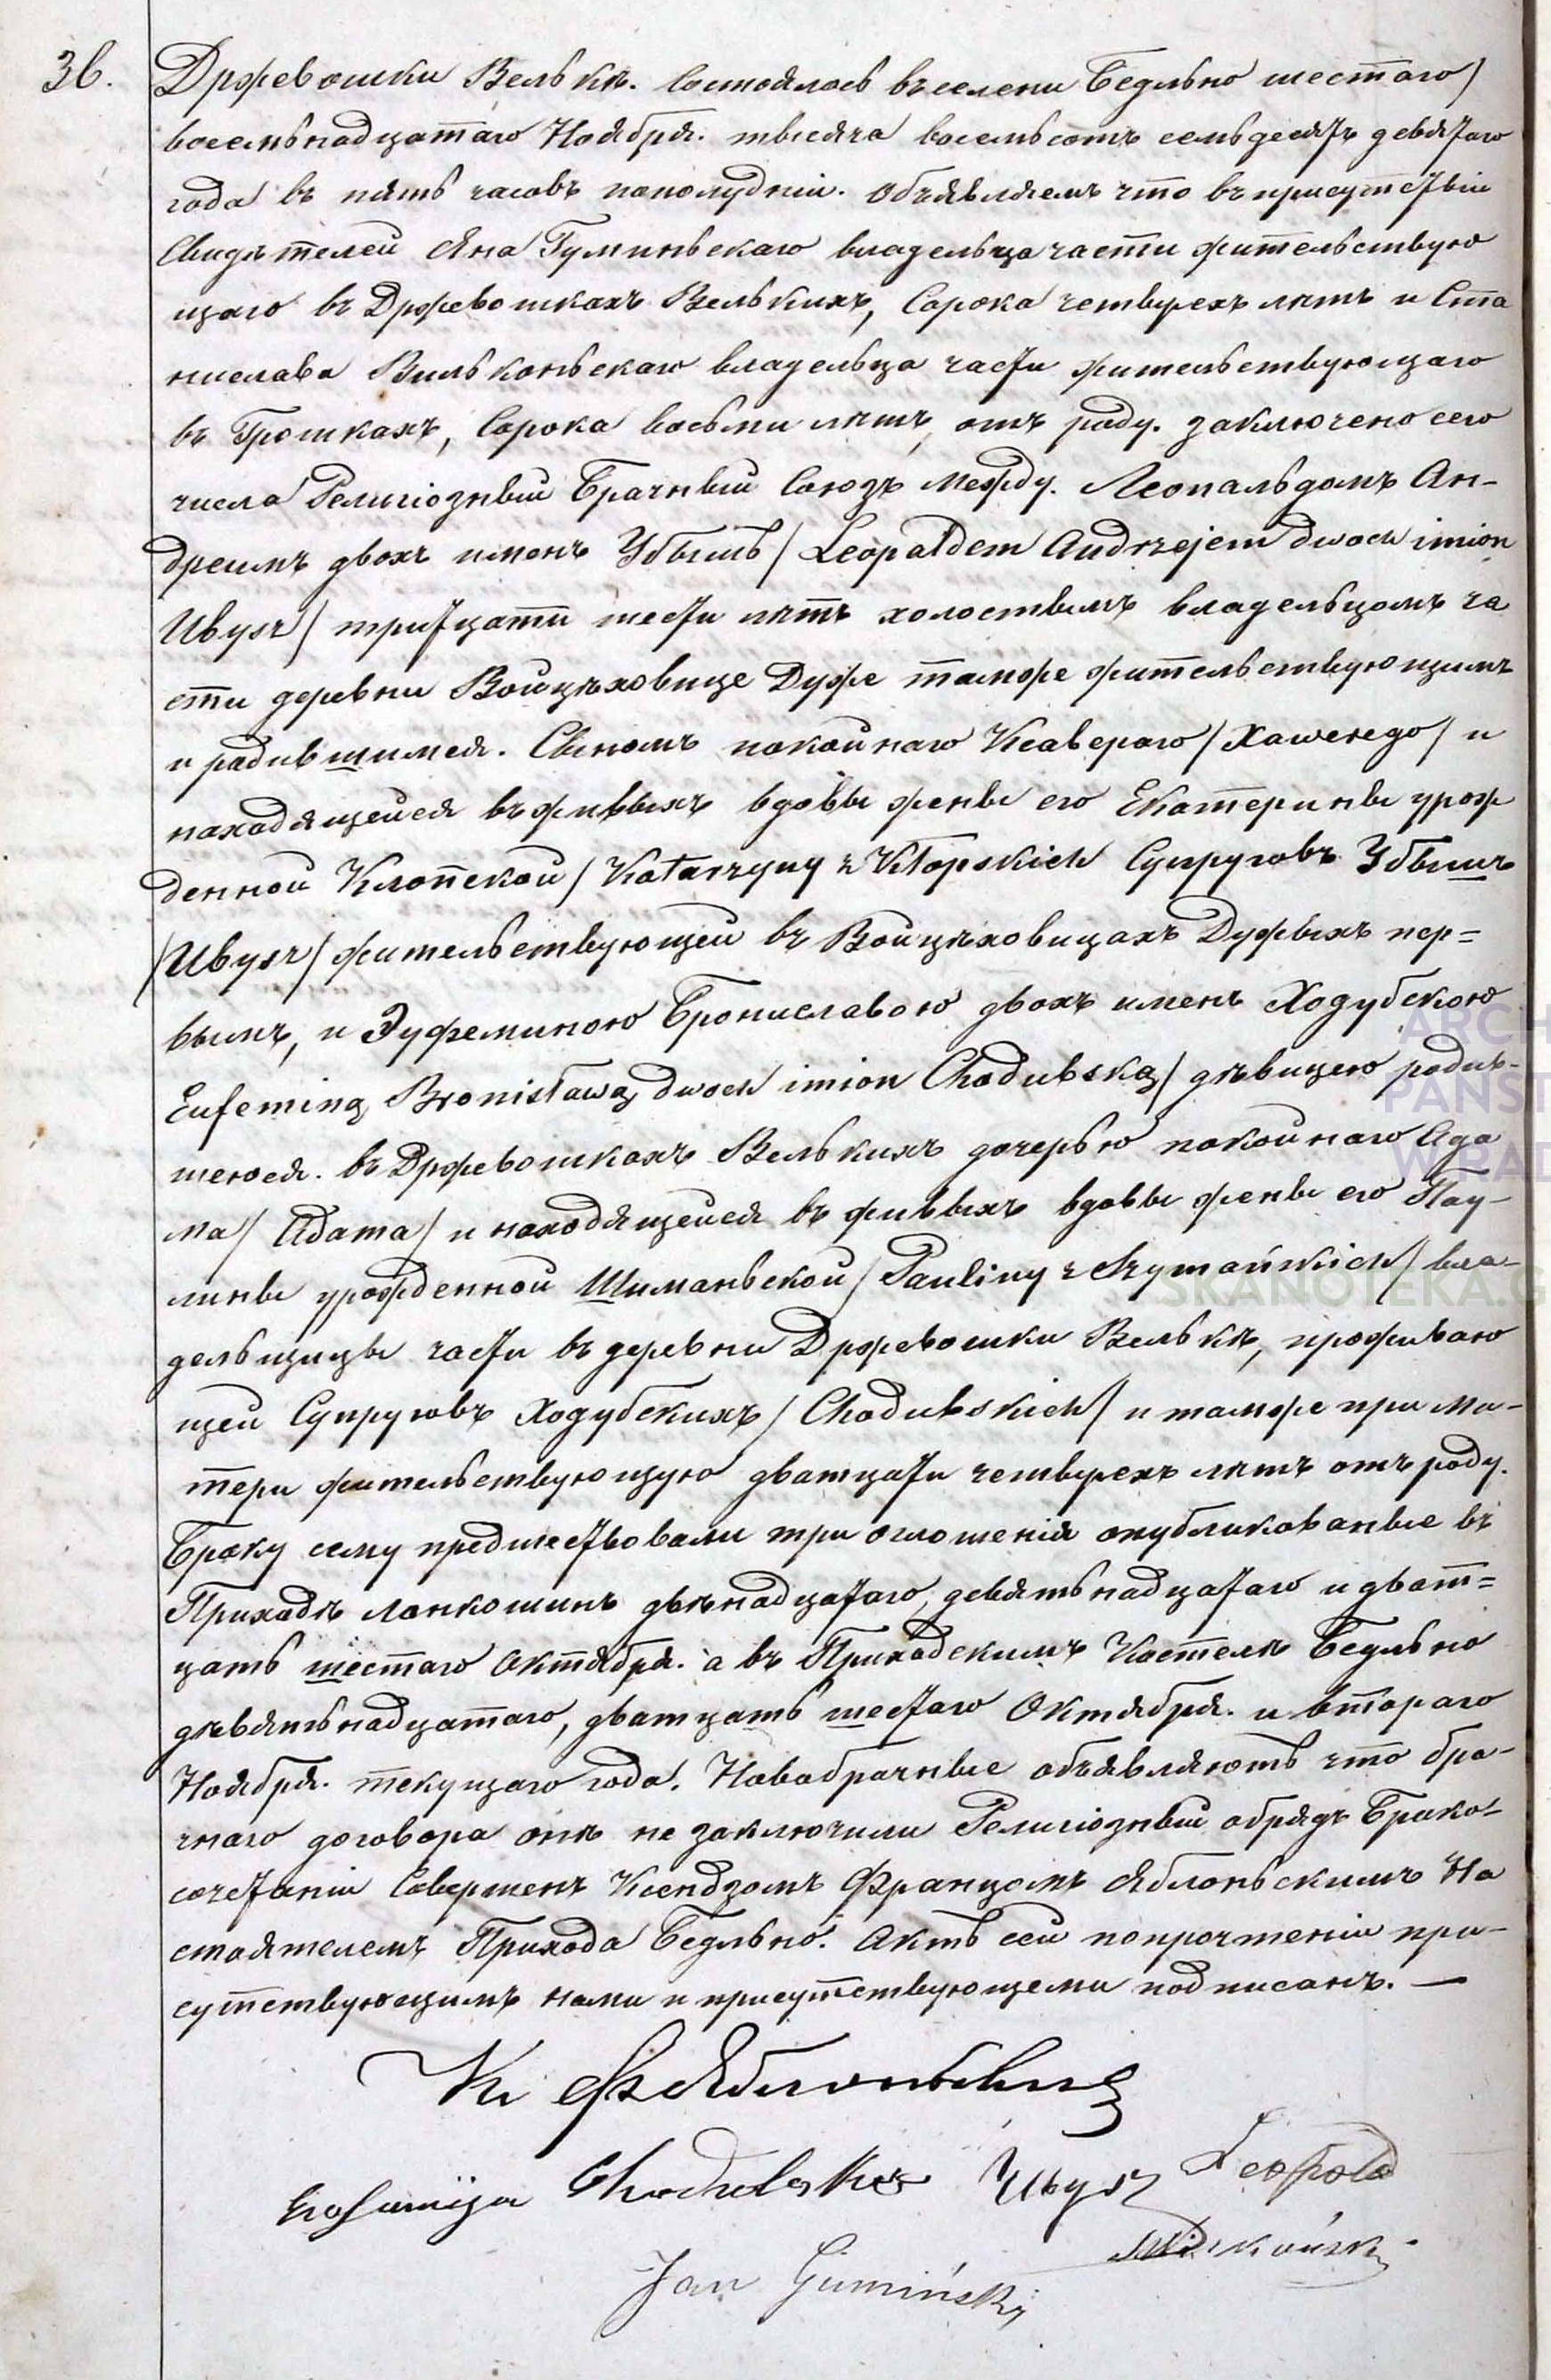 36.
Држевошки Вельке. Состоялось въ селени Бедльно шестаго/
восемьнадцатаго Ноября. тысяча восемьсотъ семьдесятъ девятаго
года въ пять часовъ пополудніи. Объявляемъ что въ присутствіи
Свидѣтелей Яна Гуминьскаго владельца части жительствую
щаго въ Држевошкахъ Вельких, Сорока четырехъ лѣтъ и Ста
нислава Вильконьскаго владельца части жительствующаго
въ Грошкахъ, Сорока восьми лѣтъ, отъ роду. заключено сего
числа Религіозный Брачный Союзъ между. Леопальдомъ Ан-
дреимъ двохъ именъ Убышъ / Leopaldem Andrzejem dwoch imion
Ubysz / тритцати шести лѣтъ холостымъ владельцомъ ча
сти деревни Войцѣховице Дуже таможе жительствующимъ
и радившимся. Сыномъ покойнаго Ксавераго / Xawerego / и
находящейся въ живыхъ вдовы жены его Екатерины урож
денной Клопской / Katarzyny z Kłopskich Супруговъ Убышъ
/Ubysz/ жительствующей въ Войцѣховицахъ Дужыхъ пер=
вымъ, и Эуфеминою Брониславою двохъ именъ Ходубскою
Eufeminą Bronisławą dwoch imion Chodubską / дѣвицею родив-
шеюся. въ Држевошкахъ Вельких дочерью покойнаго Ада
ма / Adama / и находящейся въ живыхъ вдовы жены его Пау-
лины урожденной Шиманьской / Pauliny z Szymańskich / вла-
дельщицы части въ деревни Држевошки Вельке, проживаю
щей Супруговъ Ходубскихъ / Chodubskich / и таможе при ма-
тери жительствующую дватцати четырехъ лѣтъ отъ роду.
Браку сему предшествовали три оглошенія опубликованые въ
Приходѣ Ланкошинъ двѣнадцатаго, девятьнадцатаго и дват=
цать шестаго Октября. а въ Приходскимъ Костелѣ Бедльно
дѣвятьнадцатаго, дватцать шестаго Октября. и втораго
Ноября. текущаго года. Новобрачные объявляютъ что бра-
чнаго договора онѣ не заключили Религіозный обрядъ Брако-
сочетаніи Совершенъ Ксендзомъ Францомъ Яблоньскимъ На
стоятелемъ Прихода Бедльно. Актъ сей попрочтеніи при-
сутствующимъ нами и присутствующеми подписанъ. —
Кс Ф Яблоньскій
Chodubska Ubysz Leopold
Wilkoński
Jan Gumiński